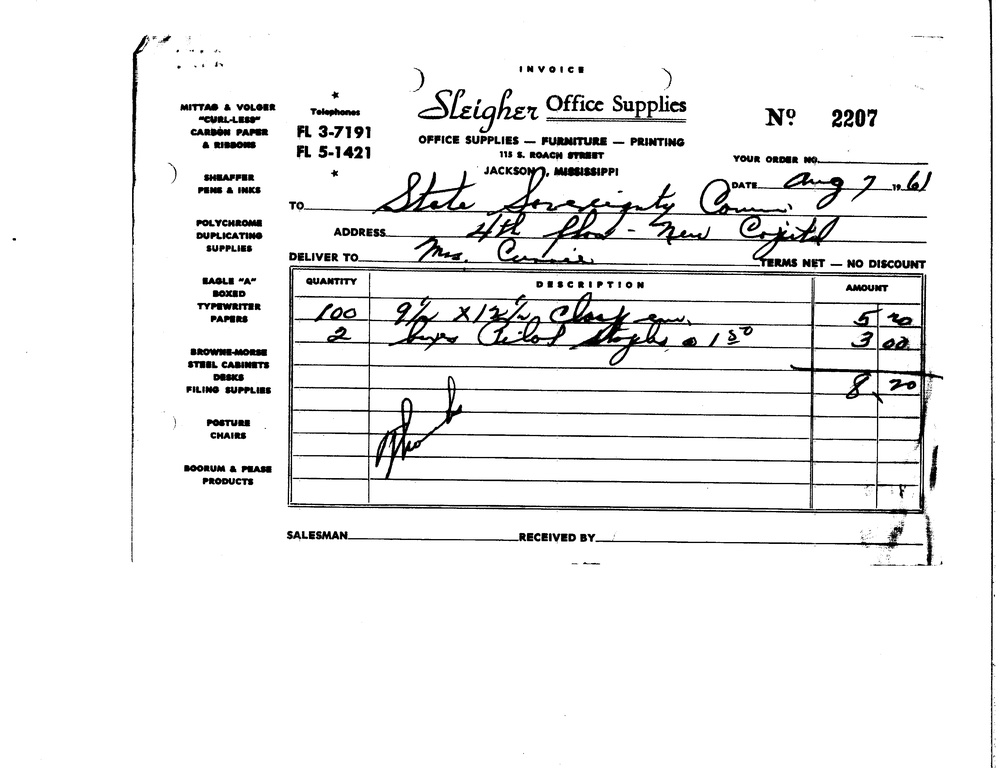 INVOICE
Sleigher Office Supplies
OFFICE SUPPLIES — FURNITURE — PRINTING
115 S. ROACH STREET
JACKSON, MISSISSIPPI
Telephones
FL 3-7191
FL 5-1421
Nº 2207
YOUR ORDER NO.
DATE Aug 7 1961
TO State Sovereignty Comm.
ADDRESS 4th floor - New Capitol
DELIVER TO Mrs.
TERMS NET — NO DISCOUNT
MITTAG & VOLGER
"CURL-LESS"
CARBON PAPER
& RIBBONS
SHEAFFER
PENS & INKS
POLYCHROME
DUPLICATING
SUPPLIES
EAGLE "A"
BOXED
TYPEWRITER
PAPERS
BROWNE-MORSE
STEEL CABINETS
DESKS
FILING SUPPLIES
POSTURE
CHAIRS
BOORUM & PEASE
PRODUCTS
QUANTITY DESCRIPTION AMOUNT
100 9½ x 12½ clasp env. 5 20
2 boxes Pilot staples @ 1 50 3 00
8. 20
SALESMAN RECEIVED BY